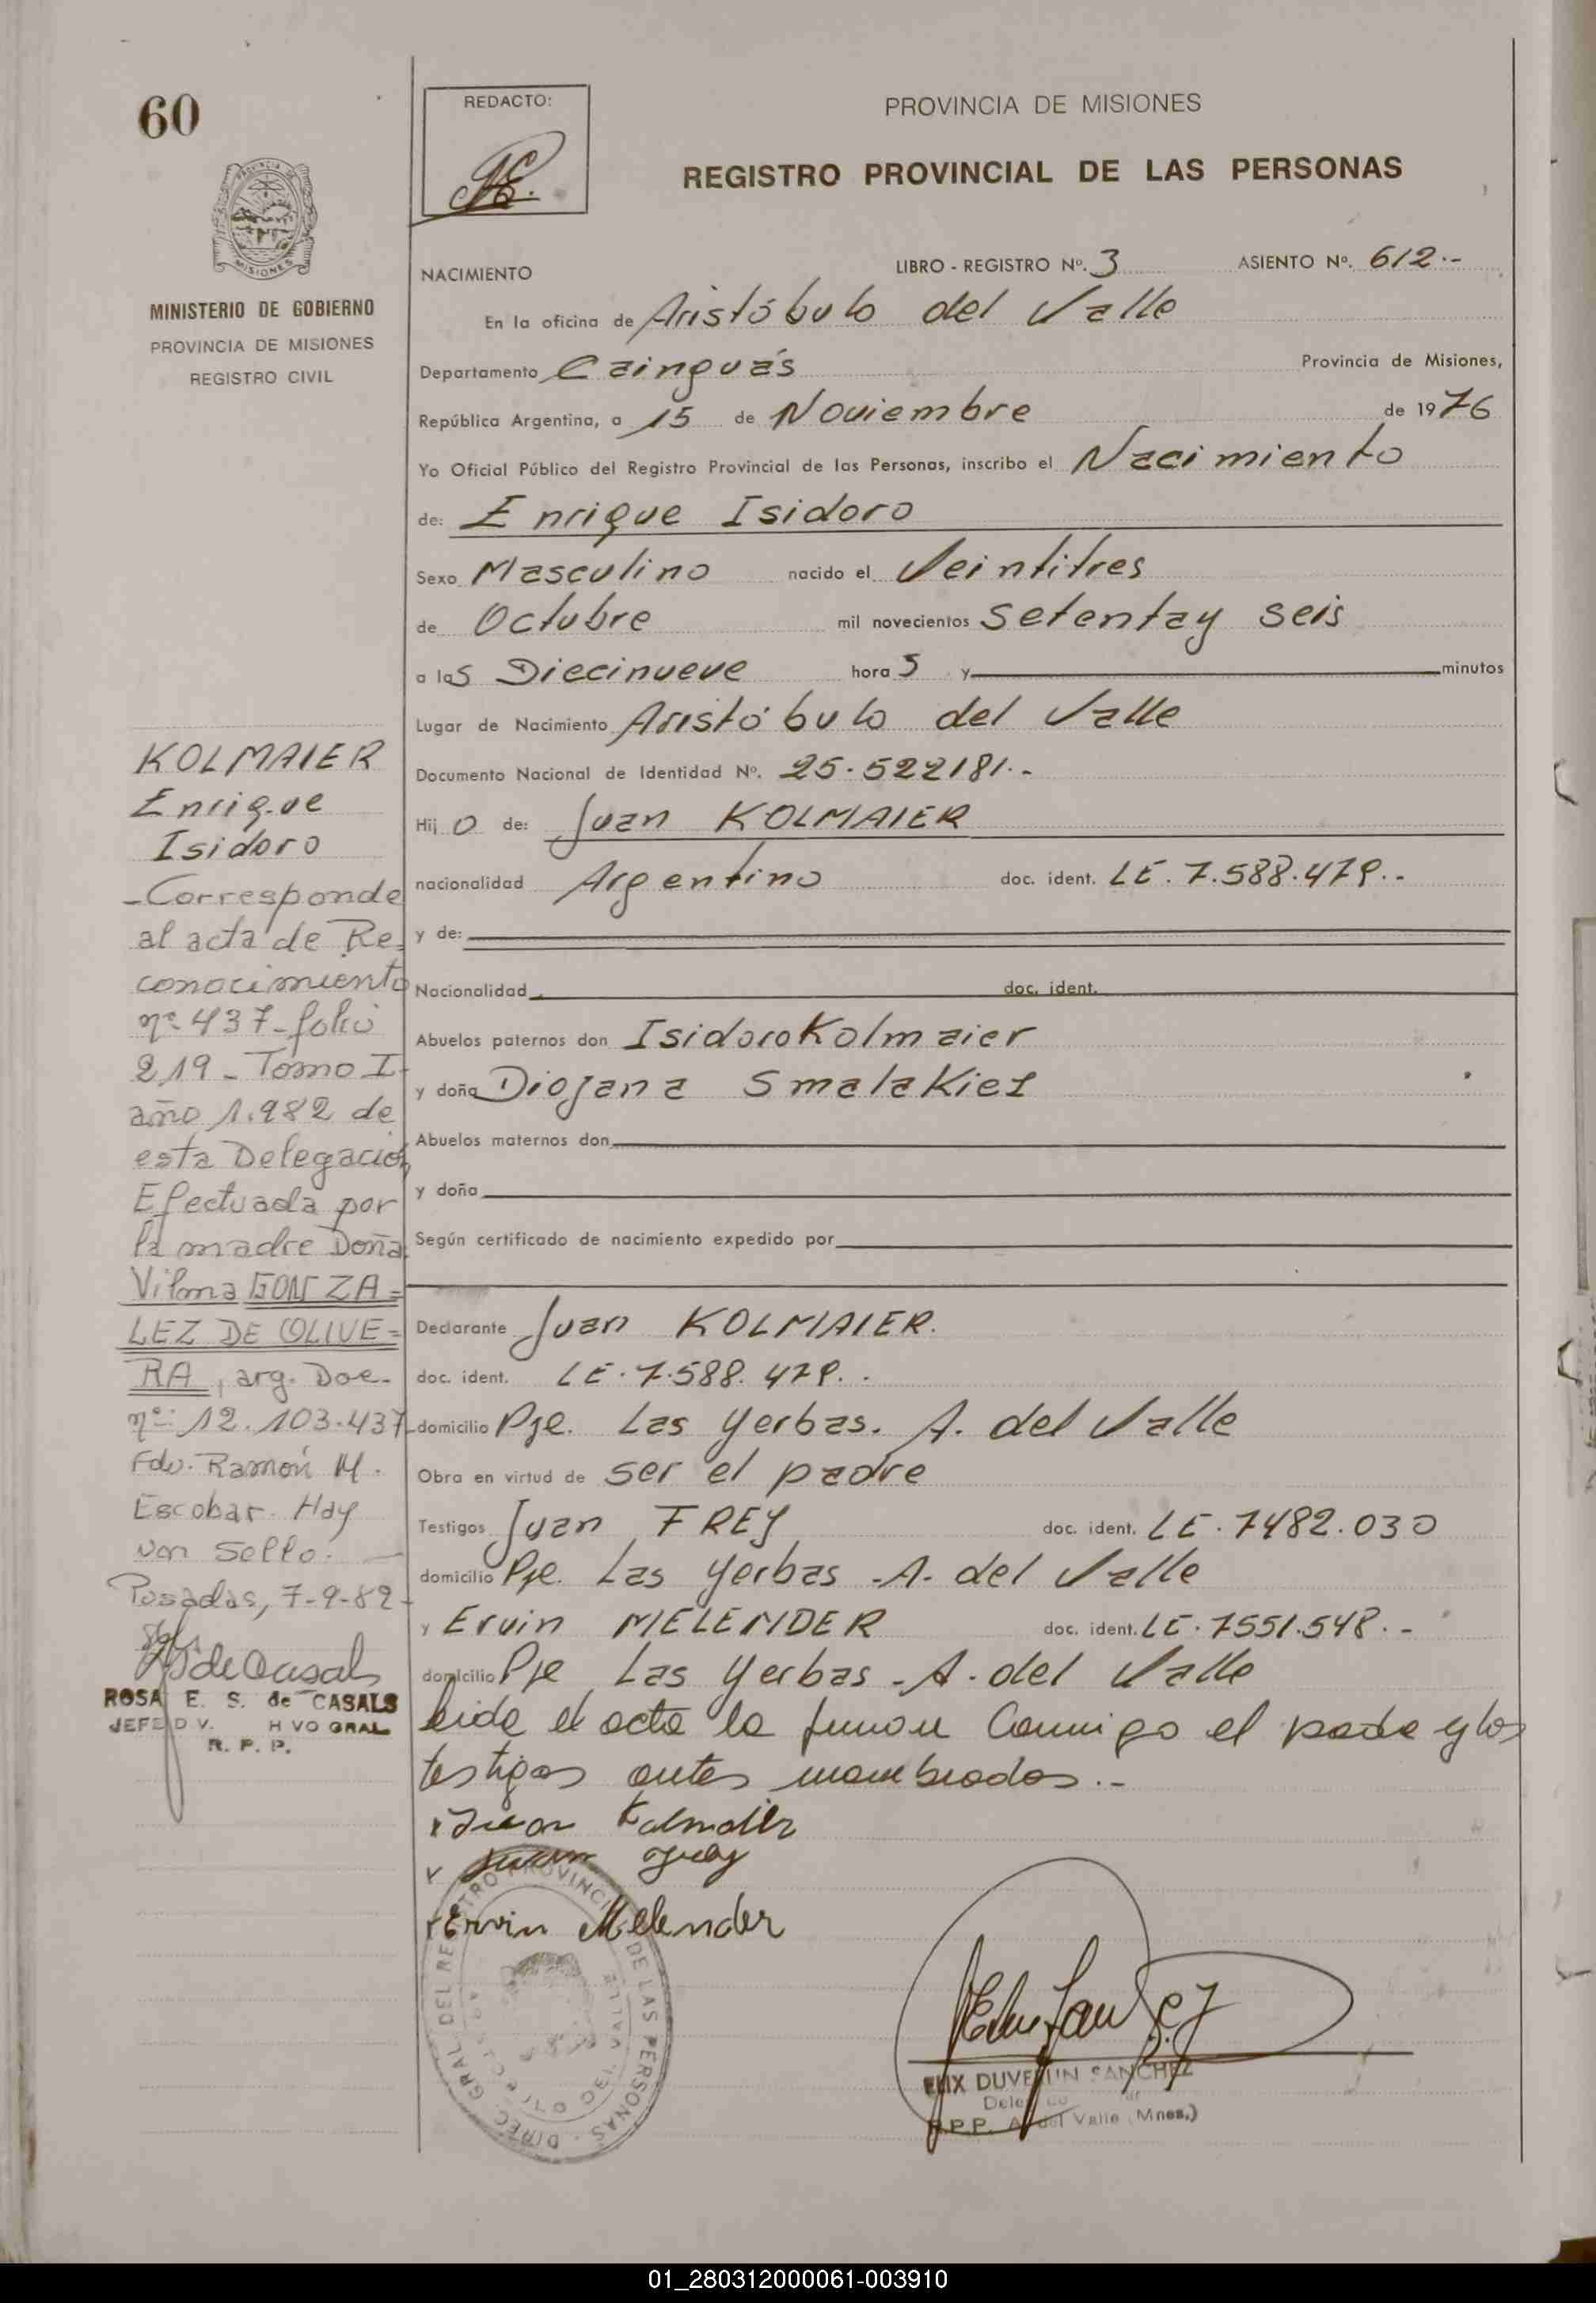 60
REDACTO:
PROVINCIA DE MISIONES
REGISTRO PROVINCIAL DE LAS PERSONAS
MISIONES
MINISTERIO DE GOBIERNO
PROVINCIA DE MISIONES
REGISTRO CIVIL
NACIMIENTO LIBRO - REGISTRO Nº. 3 ASIENTO Nº. 612.-
En la oficina de Aristóbulo del Valle
Departamento Cainguás Provincia de Misiones,
República Argentina, a 15 de Noviembre de 1976
Yo Oficial Público del Registro Provincial de las Personas, inscribo el Nacimiento
de: Enrique Isidoro
Sexo Masculino nacido el Veintitres
de Octubre mil novecientos Setentay seis
a las Diecinueve horas y minutos
Lugar de Nacimiento Aristóbulo del Valle
Documento Nacional de Identidad Nº. 25.522181.-
Hijo de: Juan KOLMAIER
nacionalidad Argentino doc. ident. LE. 7.588.479.-
y de:
Nacionalidad doc. ident.
Abuelos paternos don Isidoro Kolmaier
y doña Diojana Smalakies
Abuelos maternos don
y doña
Según certificado de nacimiento expedido por
Declarante Juan KOLMAIER.
doc. ident. LE. 7.588.479..
domicilio Pje. Las Yerbas. A. del Valle
Obra en virtud de ser el padre
Testigos Juan FREY doc. ident. LE. 7482.030
domicilio Pje. Las Yerbas -A- del Valle
y Ervin MELENDER doc. ident. LE. 7551.548.-
domicilio Pje Las Yerbas -A- del Valle
Leida el acta la firman Conmigo el padre y los
testigos antes mombrados.-
x Juan Kolmaier
x Juan Frey
x Ervin Melender
KOLMAIER
Enrique
Isidoro
-Corresponde
al acta de Re
conocimiento
nº 437-folio
219- Tomo I-
año 1.982 de
esta Delegación
Efectuada por
la madre Doña
Vilma GONZA=
LEZ DE OLIVE=
RA, arg. Doc.
nº: 12.103.437
Fdo. Ramón M.
Escobar. Hay
un sello.
Posadas, 7-9-82-
de Casals
ROSA E. S. de CASALS
JEFE DV. H VO GRAL
R. P. P.
DIREC. GRAL DEL REGISTRO PROVINCIAL DE LAS PERSONAS
DEL VALLE
DUVE SANCHEZ
R.P.P. A. del Valle (Mnes.)
01_280312000061-003910